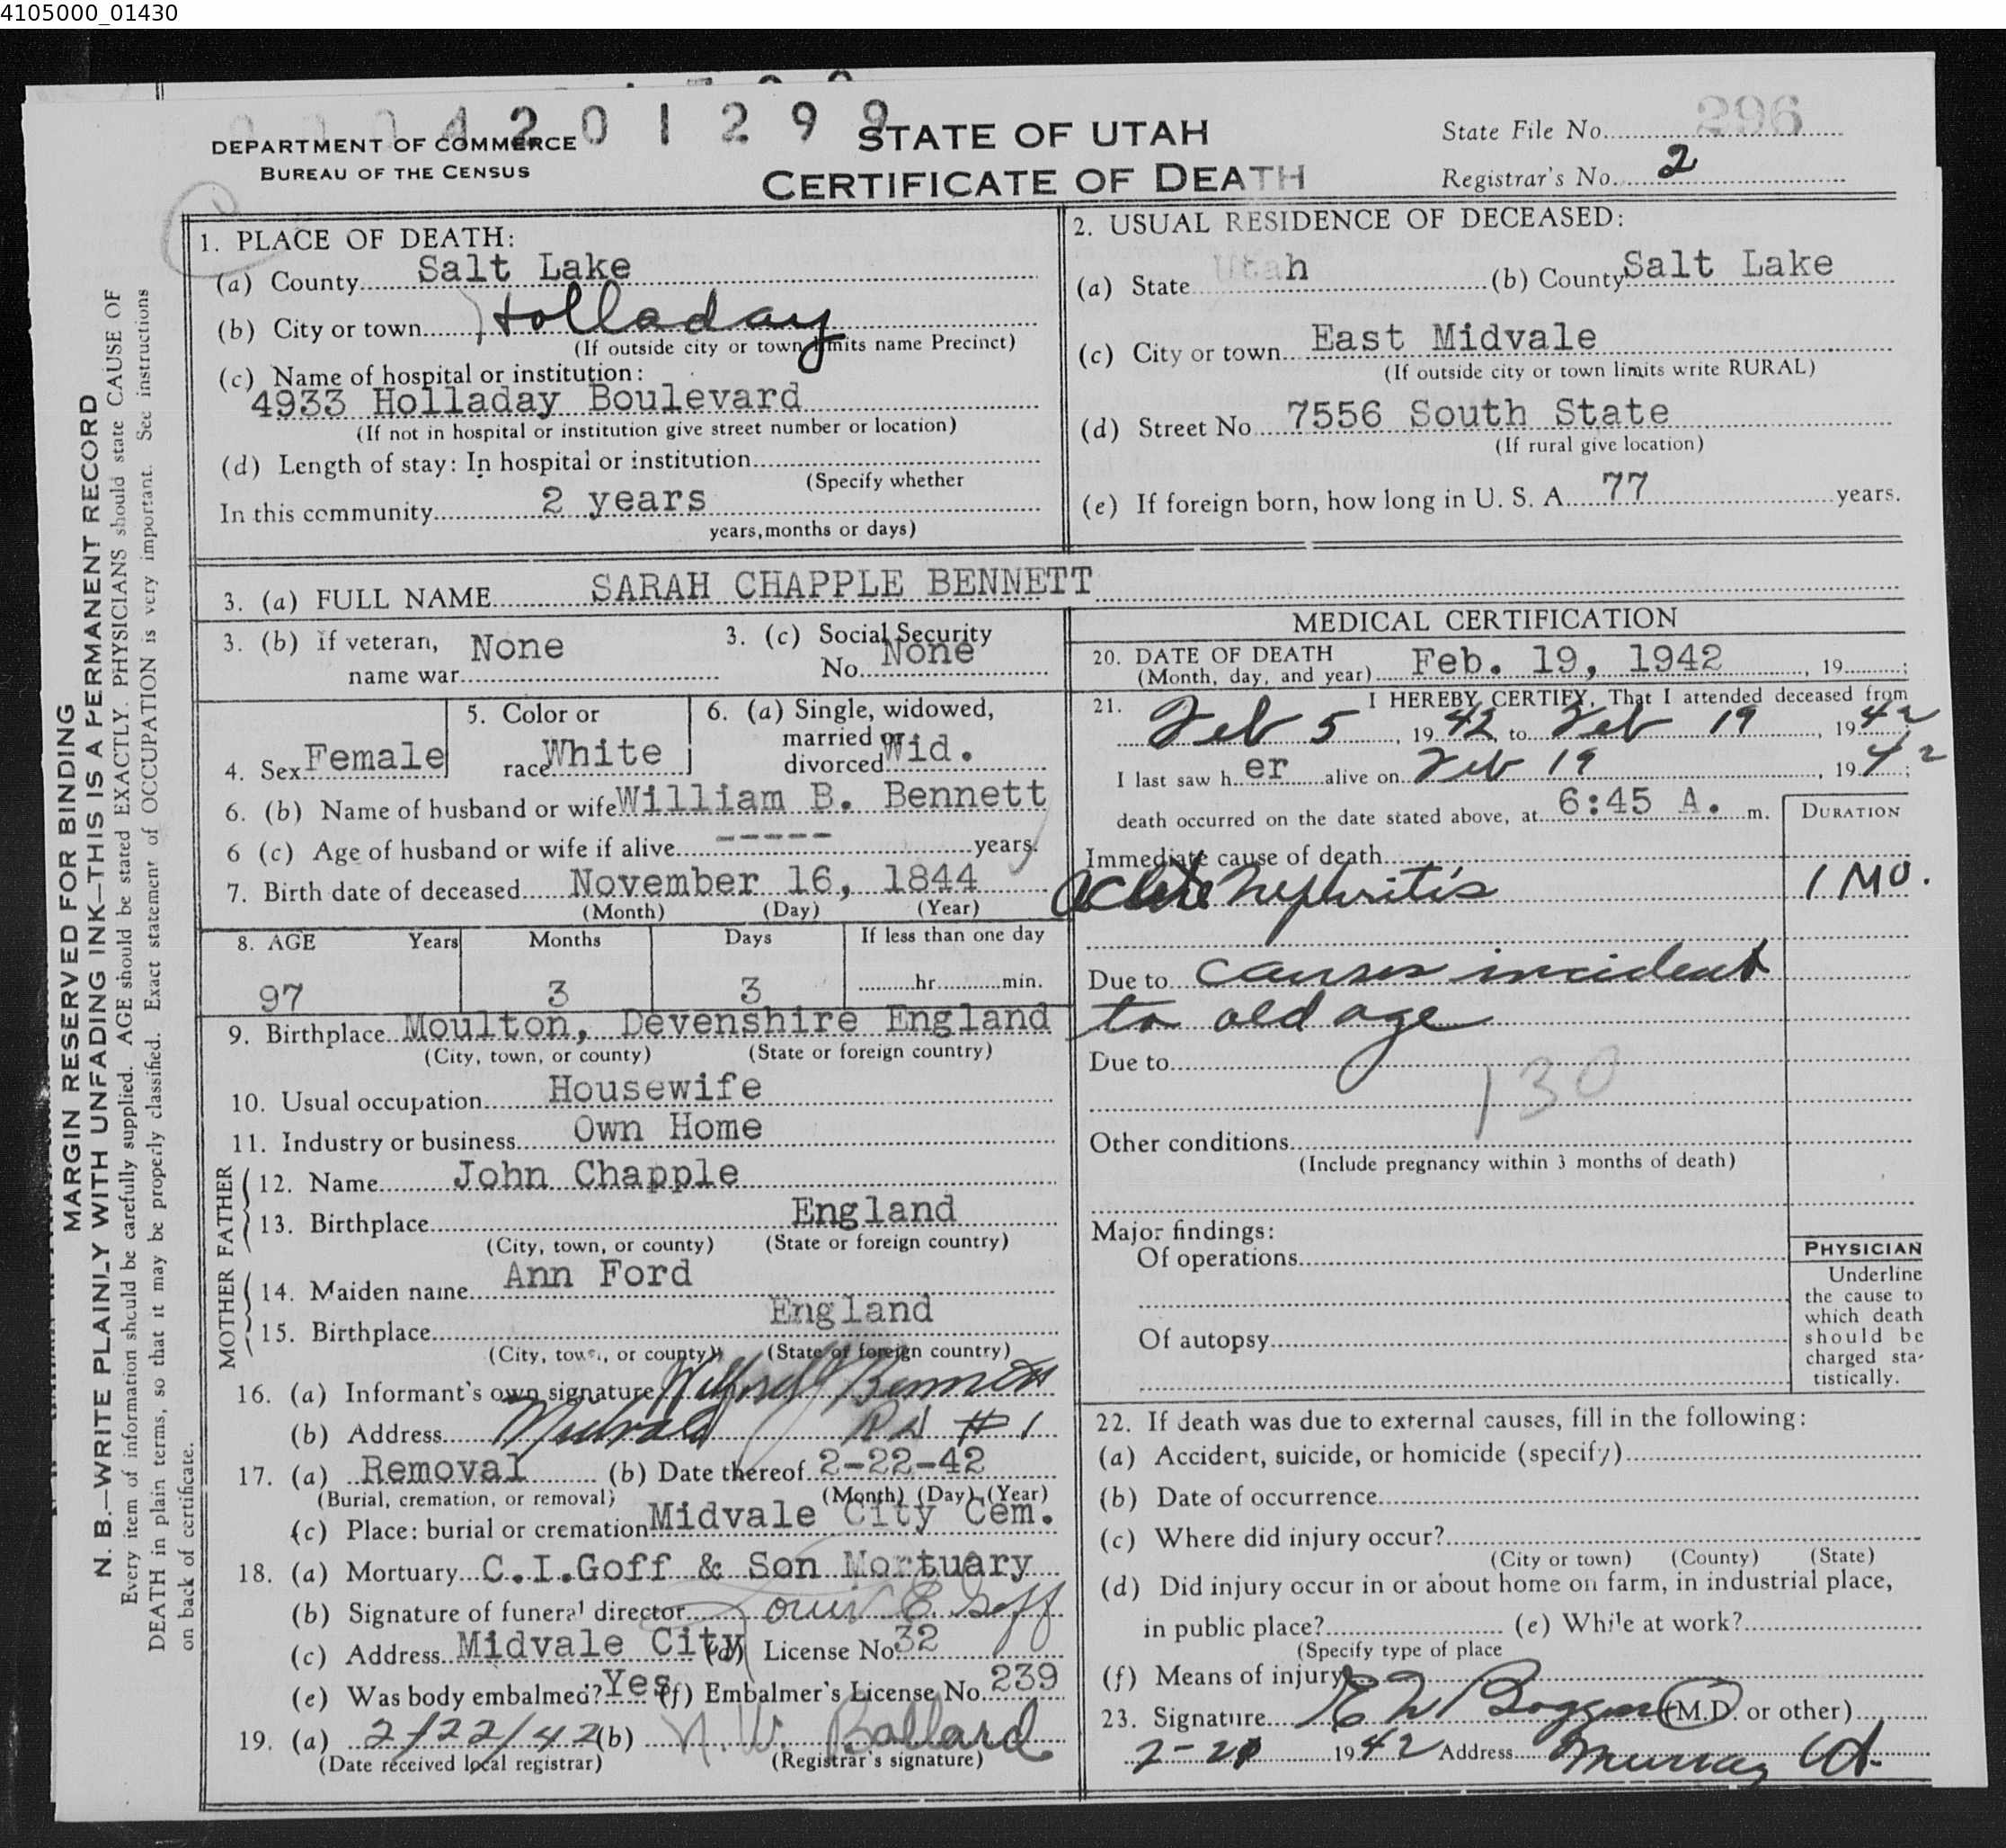 4105000_01430
4 2 0 1 2 9 9
DEPARTMENT OF COMMERCE
BUREAU OF THE CENSUS
STATE OF UTAH
CERTIFICATE OF DEATH
State File No. 296
Registrar's No. 2
MARGIN RESERVED FOR BINDING
N. B.—WRITE PLAINLY WITH UNFADING INK—THIS IS A PERMANENT RECORD
Every item of information should be carefully supplied. AGE should be stated EXACTLY. PHYSICIANS should state CAUSE OF
DEATH in plain terms, so that it may be properly classified. Exact statement of OCCUPATION is very important. See instructions
on back of certificate.
1. PLACE OF DEATH:
(a) County Salt Lake
(b) City or town Holladay
(If outside city or town limits name Precinct)
(c) Name of hospital or institution:
4933 Holladay Boulevard
(If not in hospital or institution give street number or location)
(d) Length of stay: In hospital or institution
(Specify whether
In this community 2 years
years, months or days)
2. USUAL RESIDENCE OF DECEASED:
(a) State Utah (b) County Salt Lake
(c) City or town East Midvale
(If outside city or town limits write RURAL)
(d) Street No 7556 South State
(If rural give location)
(e) If foreign born, how long in U. S. A. 77 years.
3. (a) FULL NAME SARAH CHAPPLE BENNETT
3. (b) If veteran, None
name war
3. (c) Social Security
No. None
4. Sex Female
5. Color or
race White
6. (a) Single, widowed,
married or
divorced Wid.
6. (b) Name of husband or wife William B. Bennett
6 (c) Age of husband or wife if alive ----- years.
7. Birth date of deceased November 16, 1844
(Month) (Day) (Year)
8. AGE Years Months Days If less than one day
97 3 3 hr. min.
9. Birthplace Moulton, Devenshire England
(City, town, or county) (State or foreign country)
10. Usual occupation Housewife
11. Industry or business Own Home
FATHER
12. Name John Chapple
13. Birthplace England
(City, town, or county) (State or foreign country)
MOTHER
14. Maiden name Ann Ford
15. Birthplace England
(City, town, or county) (State or foreign country)
16. (a) Informant's own signature Wilford Bennett
(b) Address Midvale # 1
17. (a) Removal (b) Date thereof 2-22-42
(Burial, cremation, or removal) (Month) (Day) (Year)
(c) Place: burial or cremation Midvale City Cem.
18. (a) Mortuary C.I.Goff & Son Mortuary
(b) Signature of funeral director E. Goff
(c) Address Midvale City (d) License No. 32
(e) Was body embalmed? Yes (f) Embalmer's License No. 239
19. (a) 2/22/42 (b) N. W. Ballard
(Date received local registrar) (Registrar's signature)
MEDICAL CERTIFICATION
20. DATE OF DEATH
(Month, day, and year) Feb. 19, 1942, 19 ;
21. I HEREBY CERTIFY, That I attended deceased from
Feb 5, 19 42, to Feb 19, 19 42
I last saw h er alive on Feb 19, 19 42;
death occurred on the date stated above, at 6:45 A. m.
DURATION
Immediate cause of death
Acute Nephritis 1 Mo.
Due to causes incident
to old age
Due to
130
Other conditions
(Include pregnancy within 3 months of death)
Major findings:
Of operations
Of autopsy
PHYSICIAN
Underline
the cause to
which death
should be
charged sta-
tistically.
22. If death was due to external causes, fill in the following:
(a) Accident, suicide, or homicide (specify)
(b) Date of occurrence
(c) Where did injury occur?
(City or town) (County) (State)
(d) Did injury occur in or about home on farm, in industrial place,
in public place? (e) While at work?
(Specify type of place
(f) Means of injury
23. Signature (M.D. or other)
1942 Address Murray Ut.